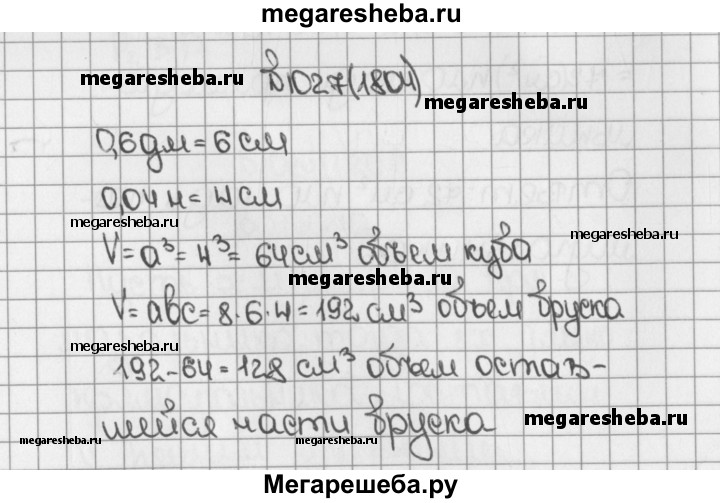 megaresheba.ru
megaresheba.ru №1027(1804)
megaresheba.ru
0,6дм = 6 см
0,04 м = 4 см
megaresheba.ru
V = a³ = 4³ = 64 см³ объем куба
megaresheba.ru
V = abc = 8·6·4 = 192 см³ объем бруска
megaresheba.ru
192-64 = 128 см³ объем остав-
шейся части бруска
megaresheba.ru
megaresheba.ru
Мегарешеба.ру